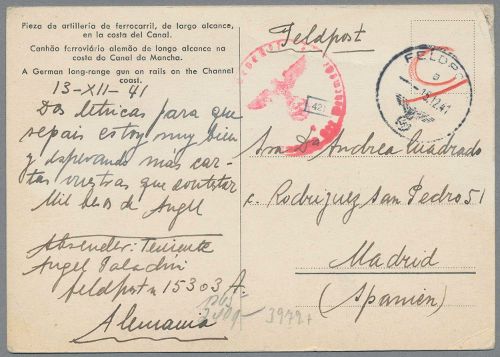 Pieza de artillería de ferrocarril, de largo alcance,
en la costa del Canal.
Canhão ferroviário alemão de longo alcance na
costa do Canal da Mancha.
A German long-range gun on rails on the Channel
coast.
13-XII-41
Dos letricas para que
sepais estoy muy bien
y esperando más car-
tas vuestras que contestar
Mil besos de Angel
Absender: Teniente
Angel Paladini
Feldpost n 15303 A.
Alemania
39727
Feldpost
421
FELDP
a
12.41
Sra Da Andrea Cuadrado
c. Rodriguez San Pedro 51
Madrid
(Spanien)